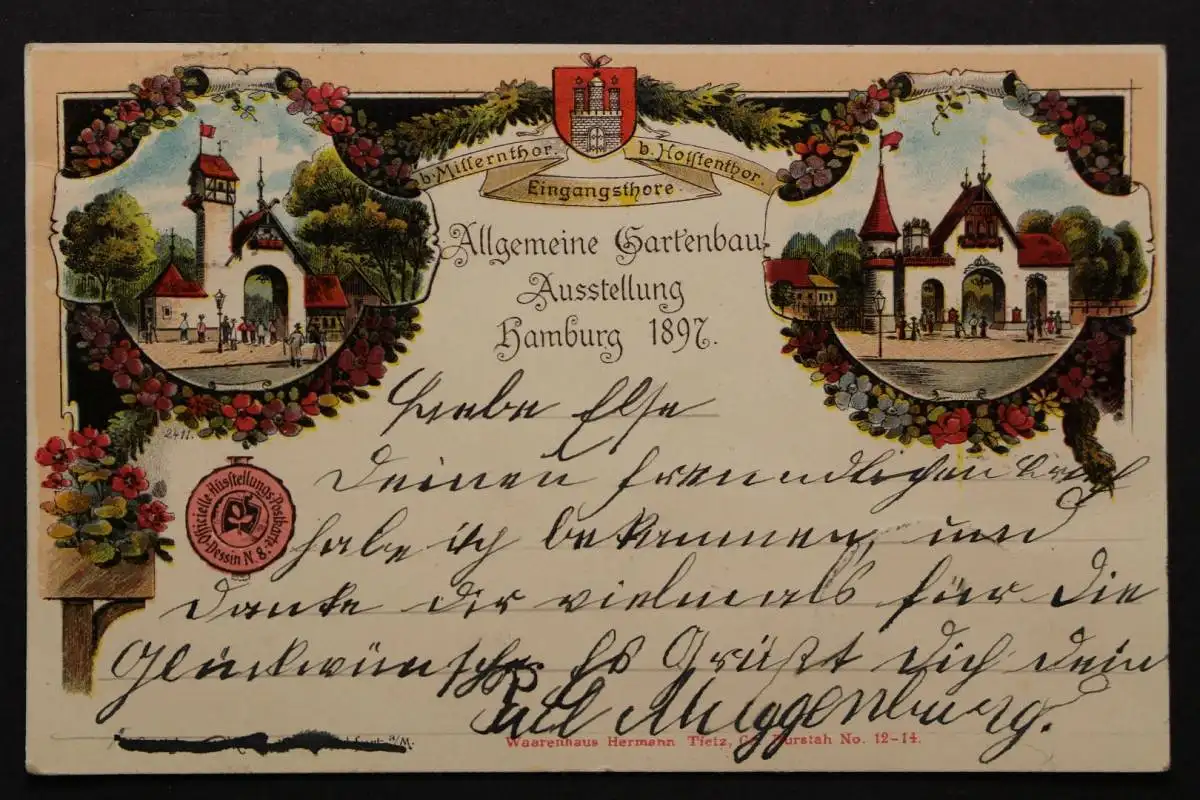 b. Millernthor.
b. Holstenthor.
Eingangsthore.
Allgemeine Gartenbau-
Ausstellung
Hamburg 1897.
2411.
Officielle Ausstellungs-Postkarte
Dessin N. 8.
Liebe Else
Deinen freundlichen Brief
habe ich bekommen, und
danke dir vielmals für die
Glückwünsche. Es Grüßt dich dein
Paul Muggenburg.
a/M.
Waarenhaus Hermann Tietz, Gr. Burstah No. 12-14.